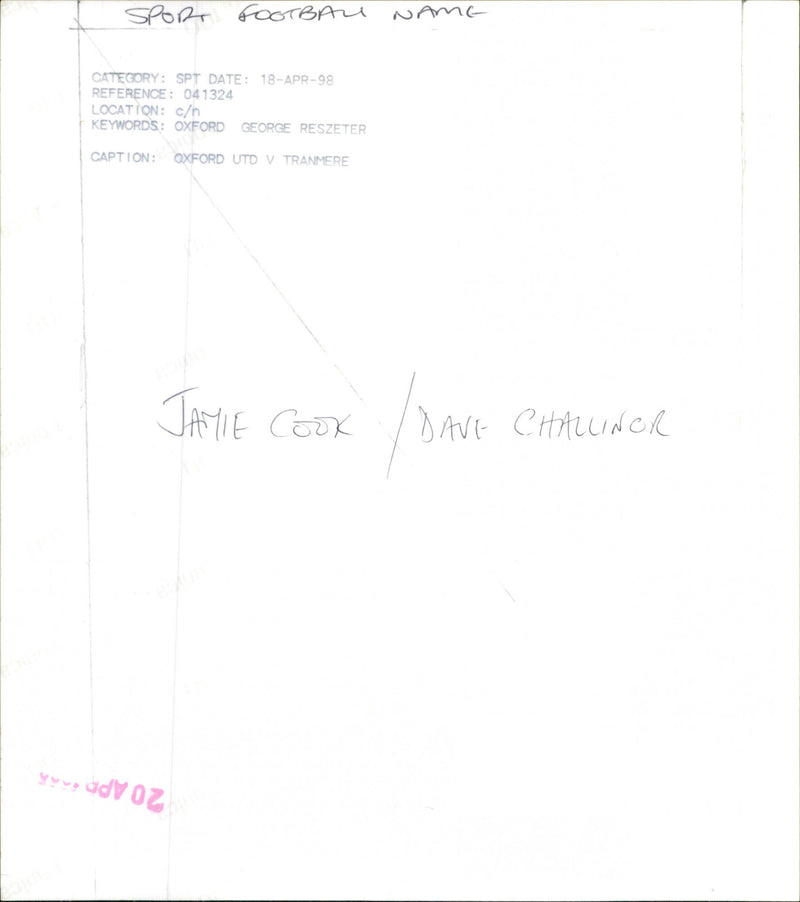 SPORT FOOTBALL NAME
CATEGORY: SPT DATE: 18-APR-98
REFERENCE: 041324
LOCATION: c/n
KEYWORDS: OXFORD GEORGE RESZETER
CAPTION: OXFORD UTD V TRANMERE
JAMIE COOK / DAVE CHALLINOR
20 APR